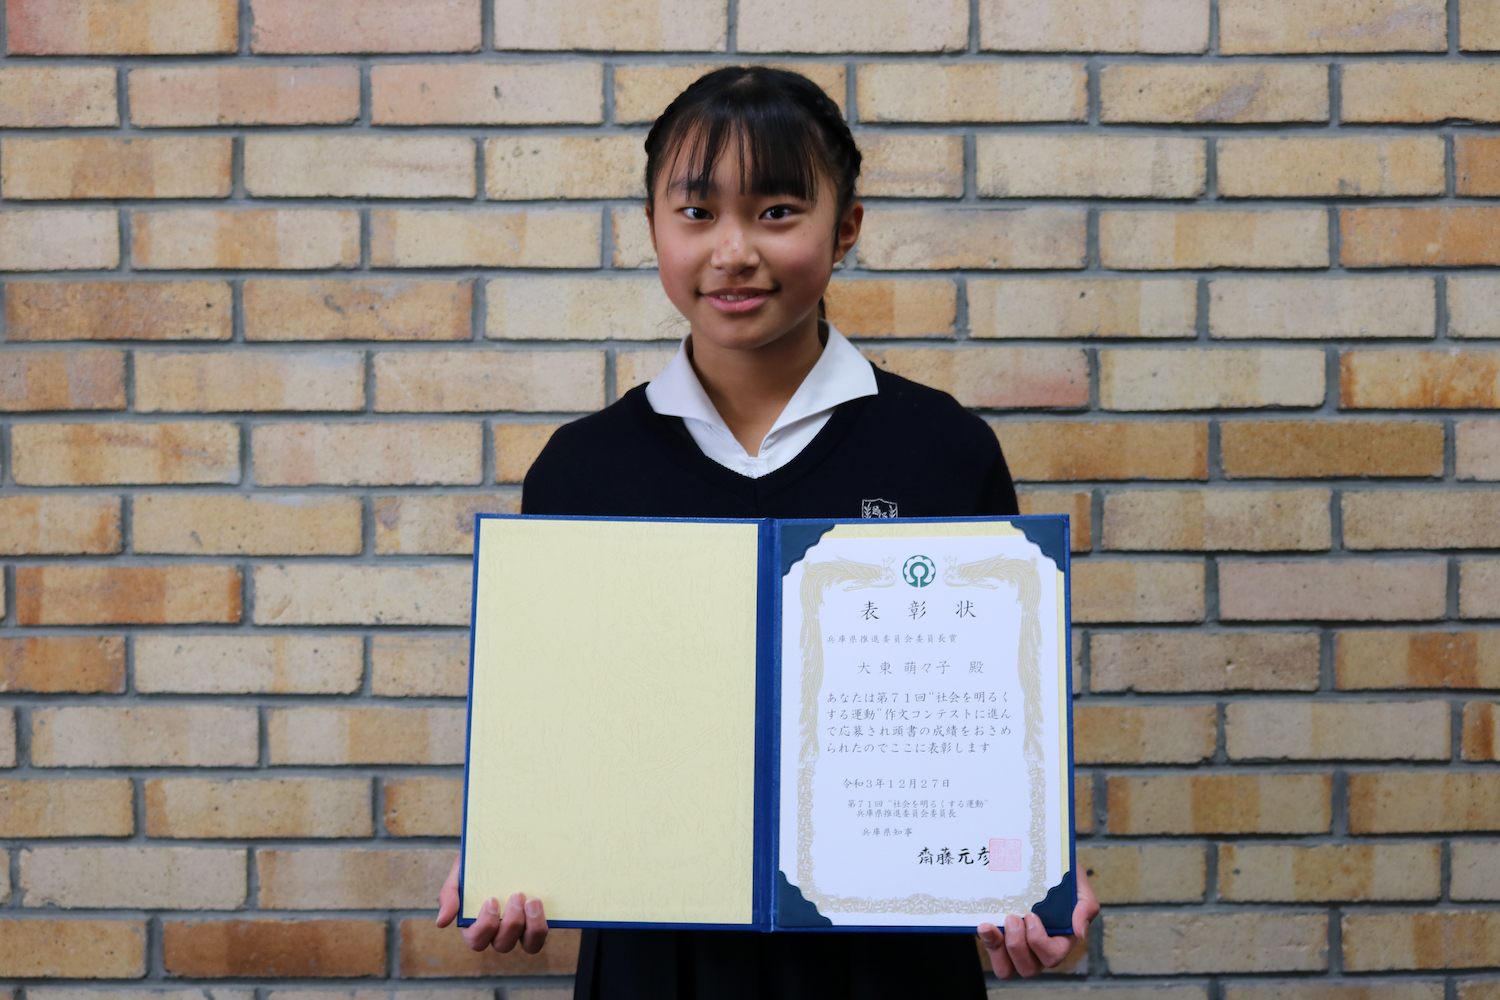 表彰状
兵庫県推進委員会委員長賞
大東 萌々子 殿
あなたは第７１回“社会を明るく
する運動”作文コンテストに進ん
で応募され頭書の成績をおさめ
られたのでここに表彰します
令和３年１２月２７日
第７１回 “社会を明るくする運動”
兵庫県推進委員会委員長
兵庫県知事
齋藤元彦